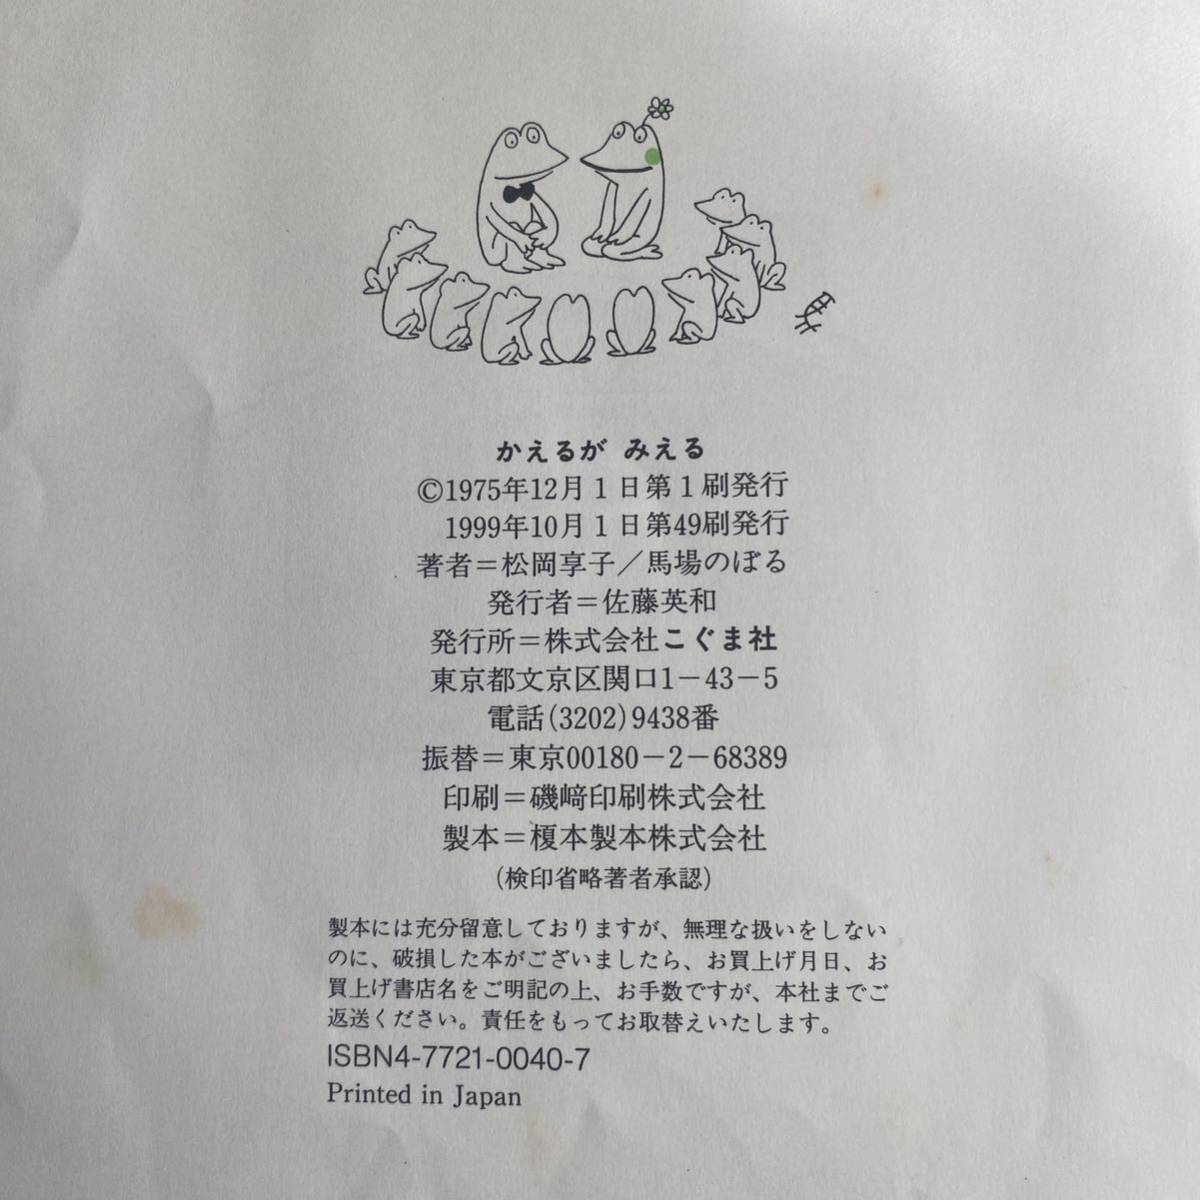 かえるが みえる
©1975年12月1日第1刷発行
1999年10月1日第49刷発行
著者＝松岡享子／馬場のぼる
発行者＝佐藤英和
発行所＝株式会社こぐま社
東京都文京区関口1－43－5
電話(3202)9438番
振替＝東京00180－2－68389
印刷＝磯﨑印刷株式会社
製本＝榎本製本株式会社
(検印省略著者承認)
製本には充分留意しておりますが、無理な扱いをしない
のに、破損した本がございましたら、お買上げ月日、お
買上げ書店名をご明記の上、お手数ですが、本社までご
返送ください。責任をもってお取替えいたします。
ISBN4-7721-0040-7
Printed in Japan